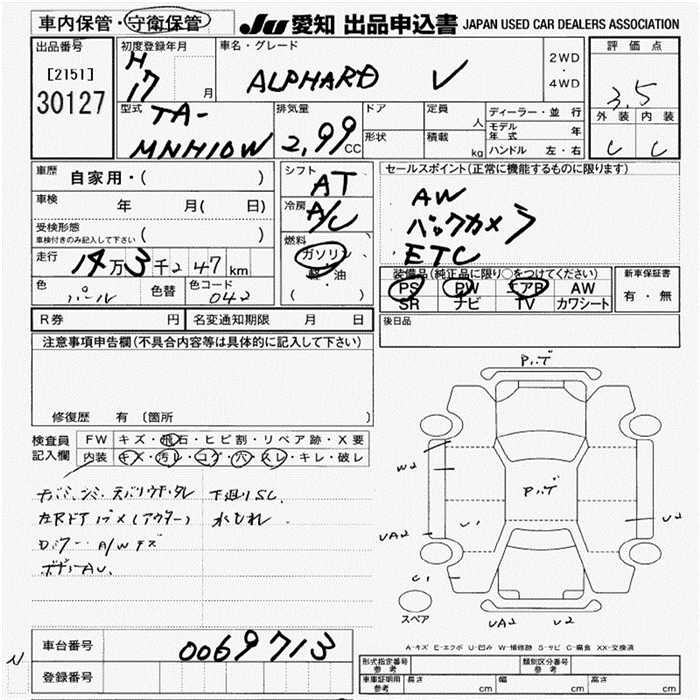 車内保管・守衛保管 JU 愛知 出品申込書 JAPAN USED CAR DEALERS ASSOCIATION
出品番号
[2151]
30127
初度登録年月
H
17 月
車名・グレード
ALPHARD V
2WD
・
4WD
評価点
3.5
外装 内装
C C
型式
TA-
MNH10W
排気量
2,99 CC
ドア
形状
定員 人
積載 kg
ディーラー・並行
モデル年式 年
ハンドル 左・右
車歴
自家用・( )
車検 年 月( 日)
受検形態
車検付きのみ記入して下さい ( )
走行 14万3千247km
色 パール 色替 色コード 042
シフト
AT
冷房
A/C
燃料
ガソリン
軽・油
( )
セールスポイント(正常に機能するものに限ります)
AW
バックカメラ
ETC
装備品(純正品に限り○をつけてください)
PS PW エアB AW
SR ナビ TV カワシート
新車保証書
有・無
R券 円 名変通知期限 月 日
後日品
注意事項申告欄(不具合内容等は具体的に記入して下さい)
修復歴 有 〔箇所
検査員
記入欄
FW キズ・飛石・ヒビ割・リペア跡・X要
内装 キズ・汚レ・コゲ・穴・スレ・キレ・破レ
下廻りSC
左Rドア
A/Wキズ
P.パテ
W2
P.パテ
UA2
U1
U2
C1
スペア
UA2 U2
A-キズ E-エクボ U-凹み W-補修跡 S-サビ C-腐食 XX-交換済
車台番号 0069713
N
登録番号
形式指定番号
参考
類別区分番号
参考
車庫証明用
参考
長さ cm 幅 cm 高さ cm